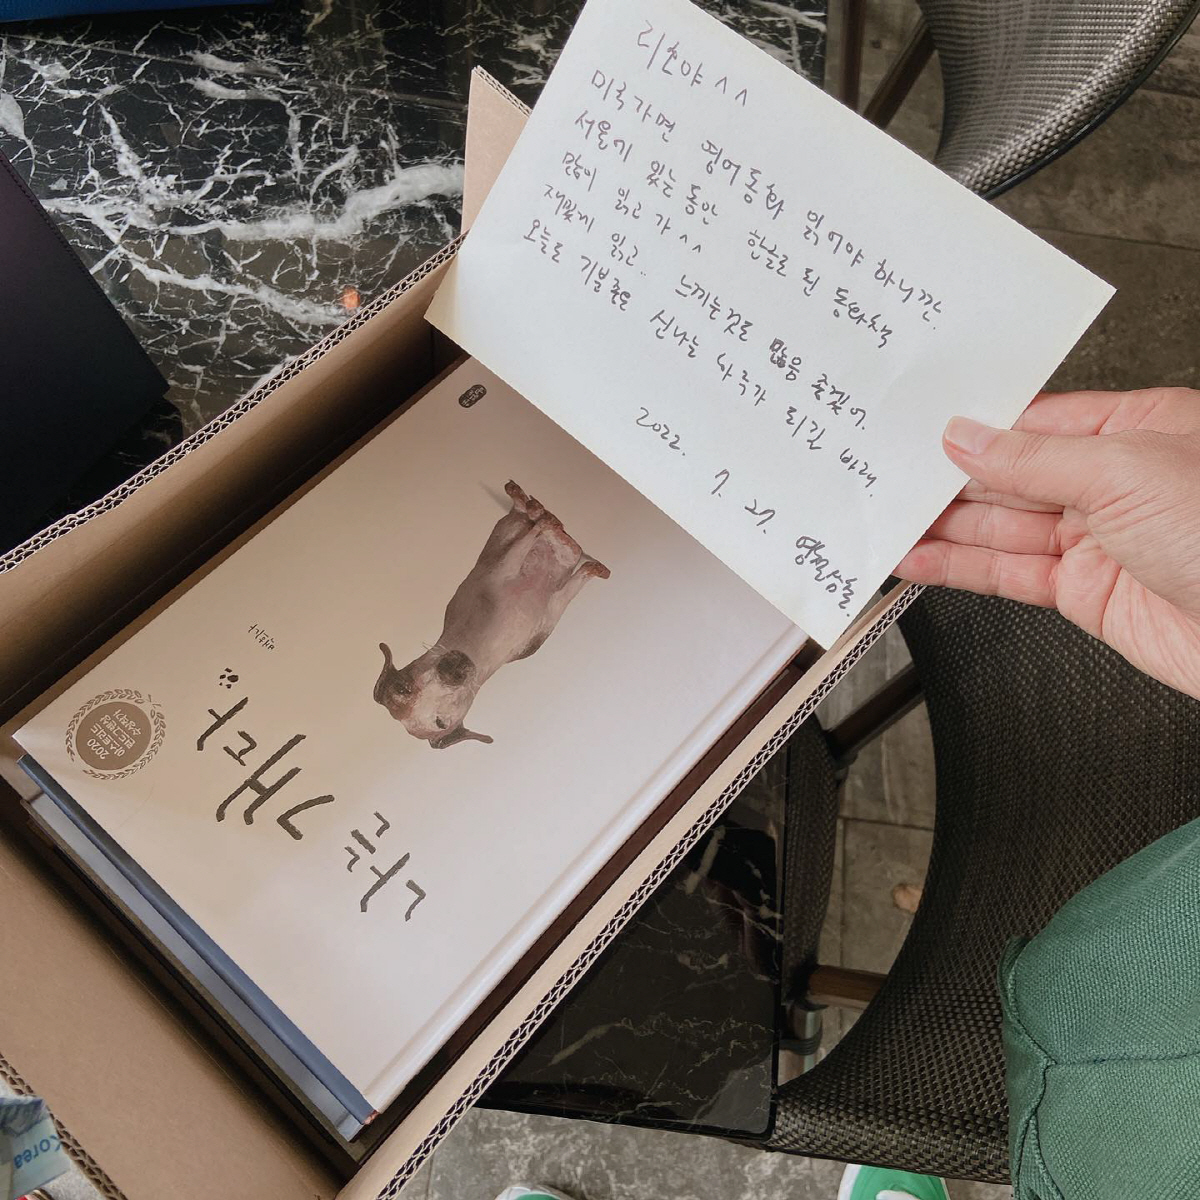 리존야 ^^
미국가면 영어동화 읽어야 하니깐.
서울에 있는 동안 한글로 된 동화책
많이 읽고 가 ^^
재밌게 읽고.. 느끼는것도 많음 좋겠어.
오늘도 기분좋은 신나는 하루가 되길 바래.
2022. 7. 27.
나는 개다
백희나
2020
아스트리드
린드그렌상
수상작가
Korea